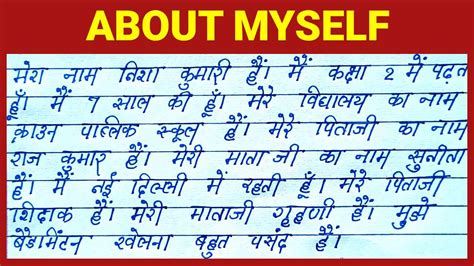 ABOUT MYSELF
मेरा नाम निशा कुमारी हैं। मैं कक्षा 2 में पढ़त
हूँ। मैं 7 साल की हूँ। मेरे विद्यालय का नाम
क्राउन पब्लिक स्कूल हैं। मेरे पिताजी का नाम
राज कुमार हैं। मेरी माता जी का नाम सुनीता
हैं। मैं नई दिल्ली में रहती हूँ। मेरे पिताजी
शिक्षक हैं। मेरी माताजी गृहणी हैं। मुझे
बैडमिंटन खेलना बहुत पसंद हैं।